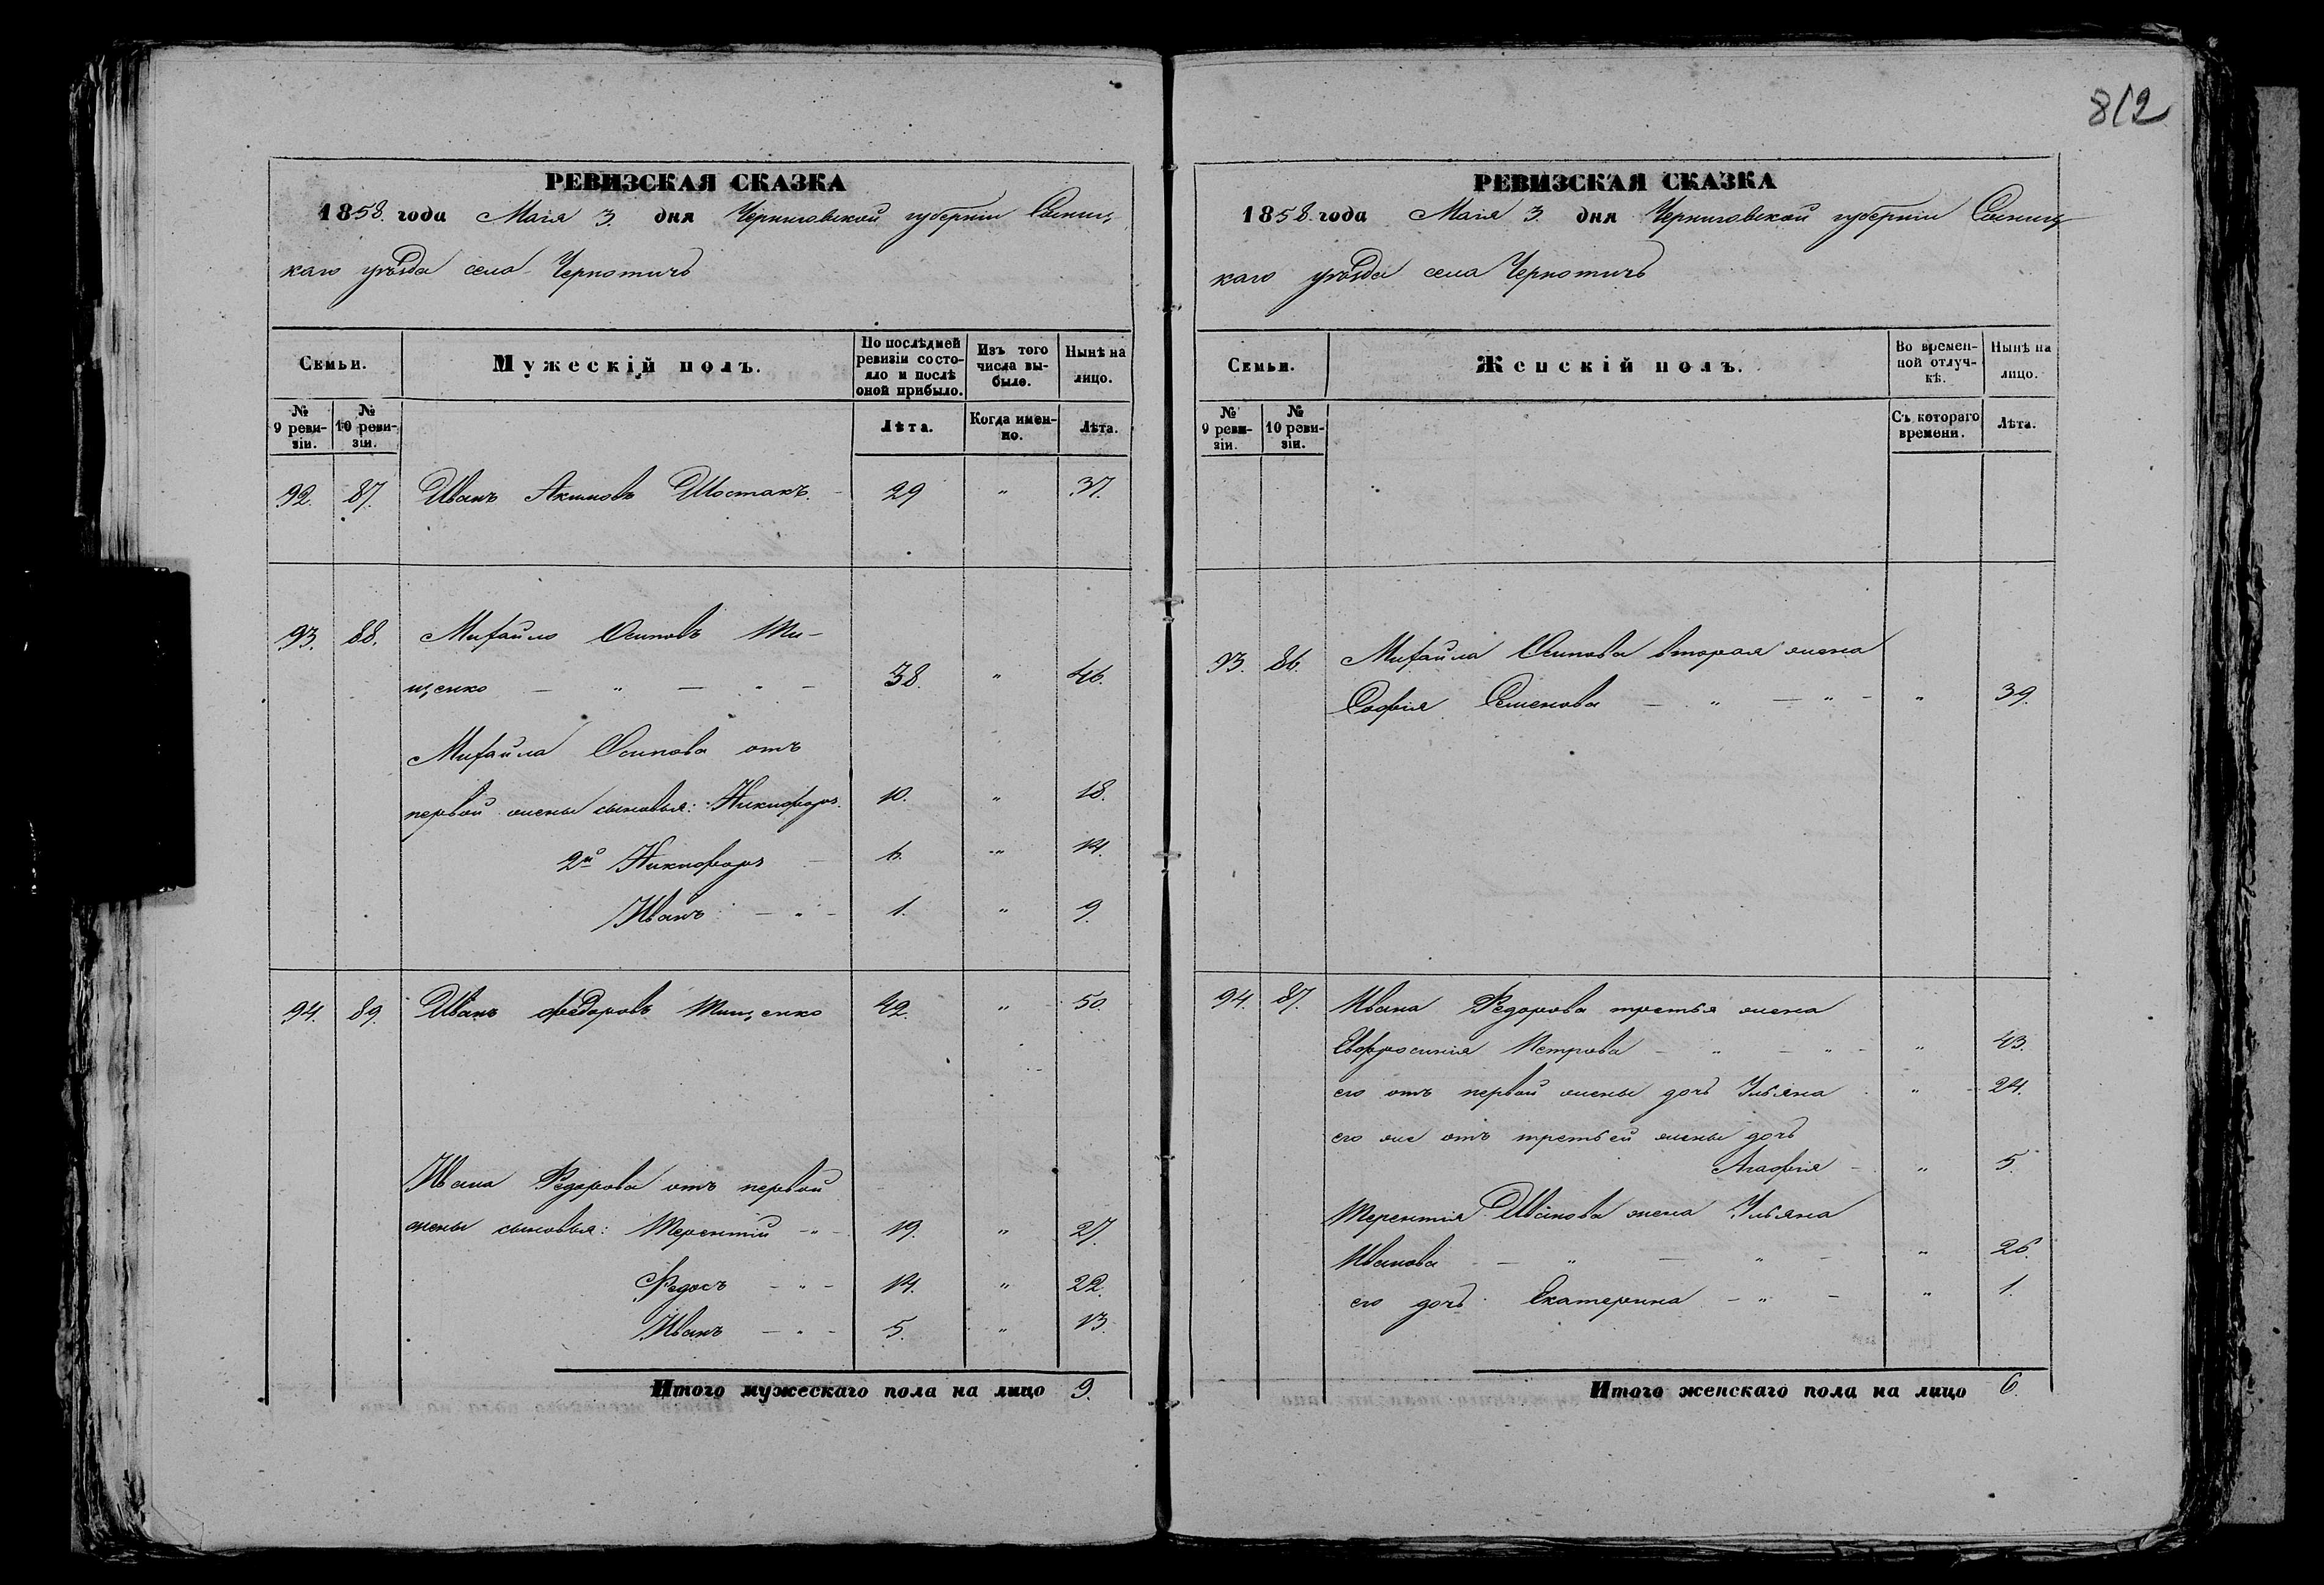 812
РЕВИЗСКАЯ СКАЗКА
1858. года Маія 3. дня Черниговской губерніи Сосниц
каго уѣзда села Чернотичь
Семьи.
Мужескій полъ.
По послѣдней ревизіи состояло и послѣ оной прибыло.
Изъ того числа выбыло.
Нынѣ на лицо.
№ 9 ревизіи.
№ 10 ревизіи.
Лѣта.
Когда именно.
Лѣта.
92. 87. Иванъ Акимовъ Шостакъ. - 29 " 37.
93. 88. Михайло Осиповъ Ти-
щенко — " — " — 38. " 46.
Михайла Осипова отъ
первой жены сыновья: Никифоръ. 10. " 18.
2й Никифоръ — 6. " 14.
Иванъ — " — 1. " 9.
94. 89. Иванъ Федоровъ Тищенко 42. " 50.
Ивана Федорова отъ первой
жены сыновья: Терентій — " — 19. " 27.
Федосъ — " — 14. " 22.
Иванъ — " — 5. " 13.
Итого мужескаго пола на лицо 9.
РЕВИЗСКАЯ СКАЗКА
1858. года Маія 3. дня Черниговской губерніи Сосниц
каго уѣзда села Чернотичь
Семьи.
Женскій полъ.
Во временной отлучкѣ.
Нынѣ на лицо.
№ 9 ревизіи.
№ 10 ревизіи.
Съ котораго времени.
Лѣта.
93. 86. Михайла Осипова вторая жена
Софія Семенова — " — " — " 39.
94. 87. Ивана Федорова третья жена
Евфросинія Петрова — " — " — " 43.
его отъ первой жены дочь Ульяна " 24.
его же отъ третьей жены дочь
Агафія — " 5.
Терентія Иванова жена Ульяна
Иванова — " — " — " 26.
его дочь Екатерина — " — " 1.
Итого женскаго пола на лицо 6.